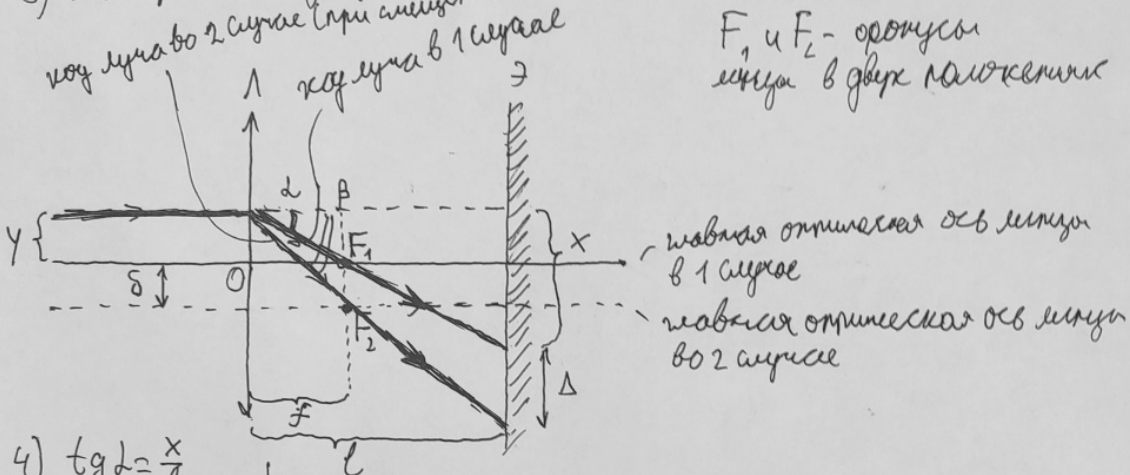 ход луча во 2 случае (при смещ
ход луча в 1 случае
F₁ и F₂ - фокусы
линзы в двух положениях
Л
Э
α
β
y
x
F₁
главная оптическая ось линзы
в 1 случае
δ
O
F₂
главная оптическая ось линзы
во 2 случае
Δ
f
l
4) tg α = x